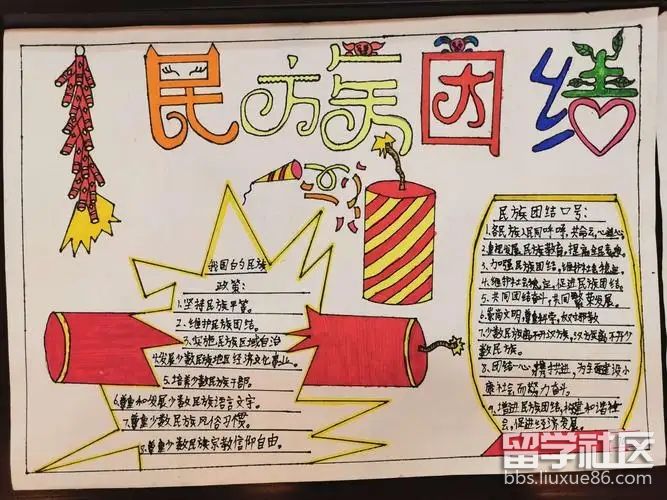 民族团结
我国的民族
政策:
1.坚持民族平等。
2.维护民族团结。
3.实施民族区域自治
4.发展少数民族地区经济文化事业。
5.培养少数民族干部。
6.尊重和发展少数民族语言文字。
7.尊重少数民族风俗习惯。
8.尊重少数民族宗教信仰自由。
民族团结口号:
1.各民族人民同呼吸,共命运,心连心
2.重视发展民族教育,提高全民素质。
3.加强民族团结,维护社会稳定。
4.维护社会稳定,促进民族团结。
5.共同团结奋斗,共同繁荣发展。
6.崇尚文明,尊重科学,反对邪教
7.少数民族离不开汉族,汉族离不开少
数民族。
8.团结一心,携手共进,为全面建设小
康社会而努力奋斗。
9.增进民族团结,构建和谐社
会,促进经济发展。
留学社区
bbs.liuxue86.com